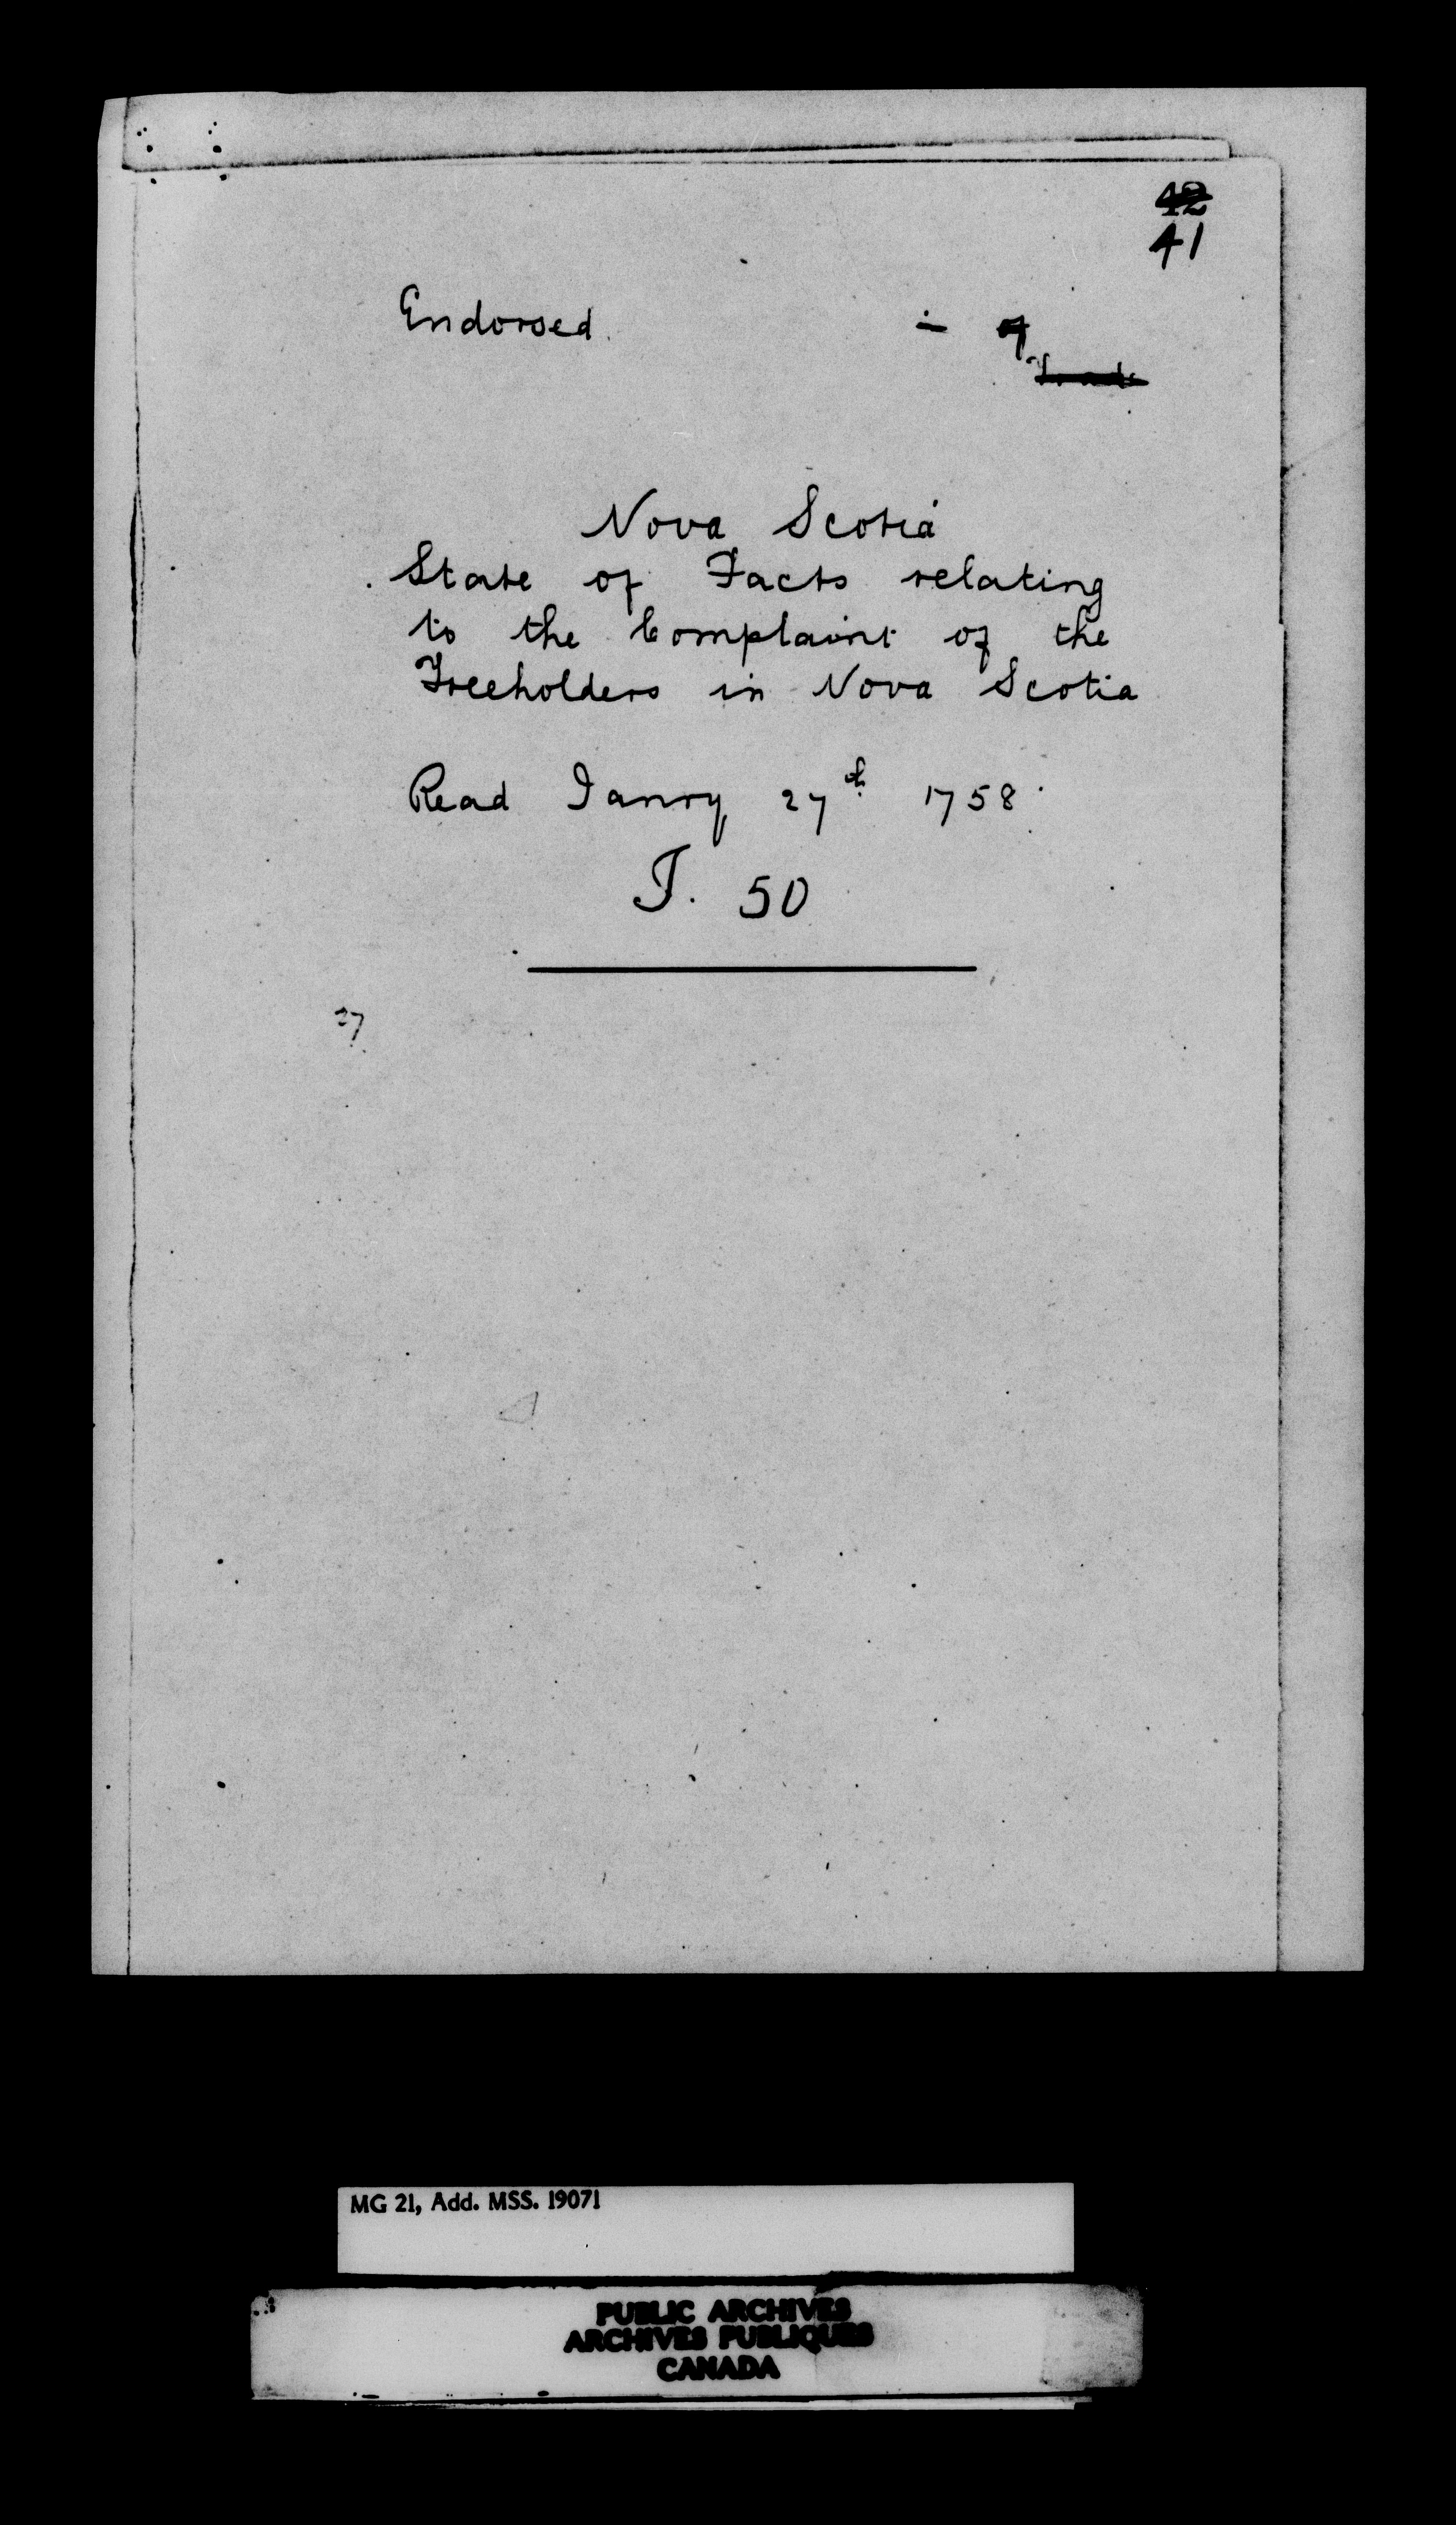 42
41
Endorsed.
Nova Scotia
State of Facts relating
to the Complaint of the
Freeholders in Nova Scotia
Read Janry 27th 1758.
J. 50
27
MG 21, Add. MSS. 19071
PUBLIC ARCHIVES
ARCHIVES PUBLIQUES
CANADA